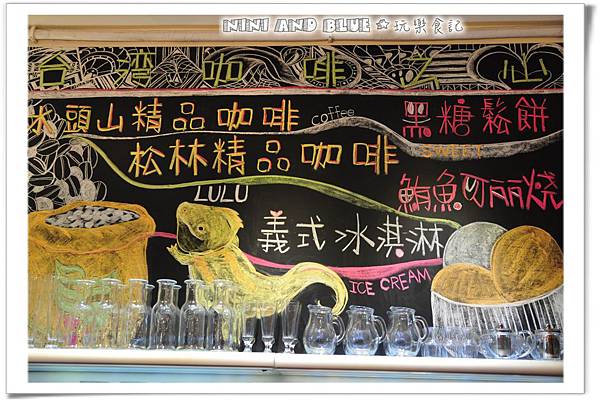 NINI AND BLUE ☆玩樂食記
台灣咖啡之心
木頭山精品咖啡 coffee
黑糖鬆餅
松林精品咖啡
SWEET
LULU
鮪魚可丽烧
義式冰淇淋
ICE CREAM